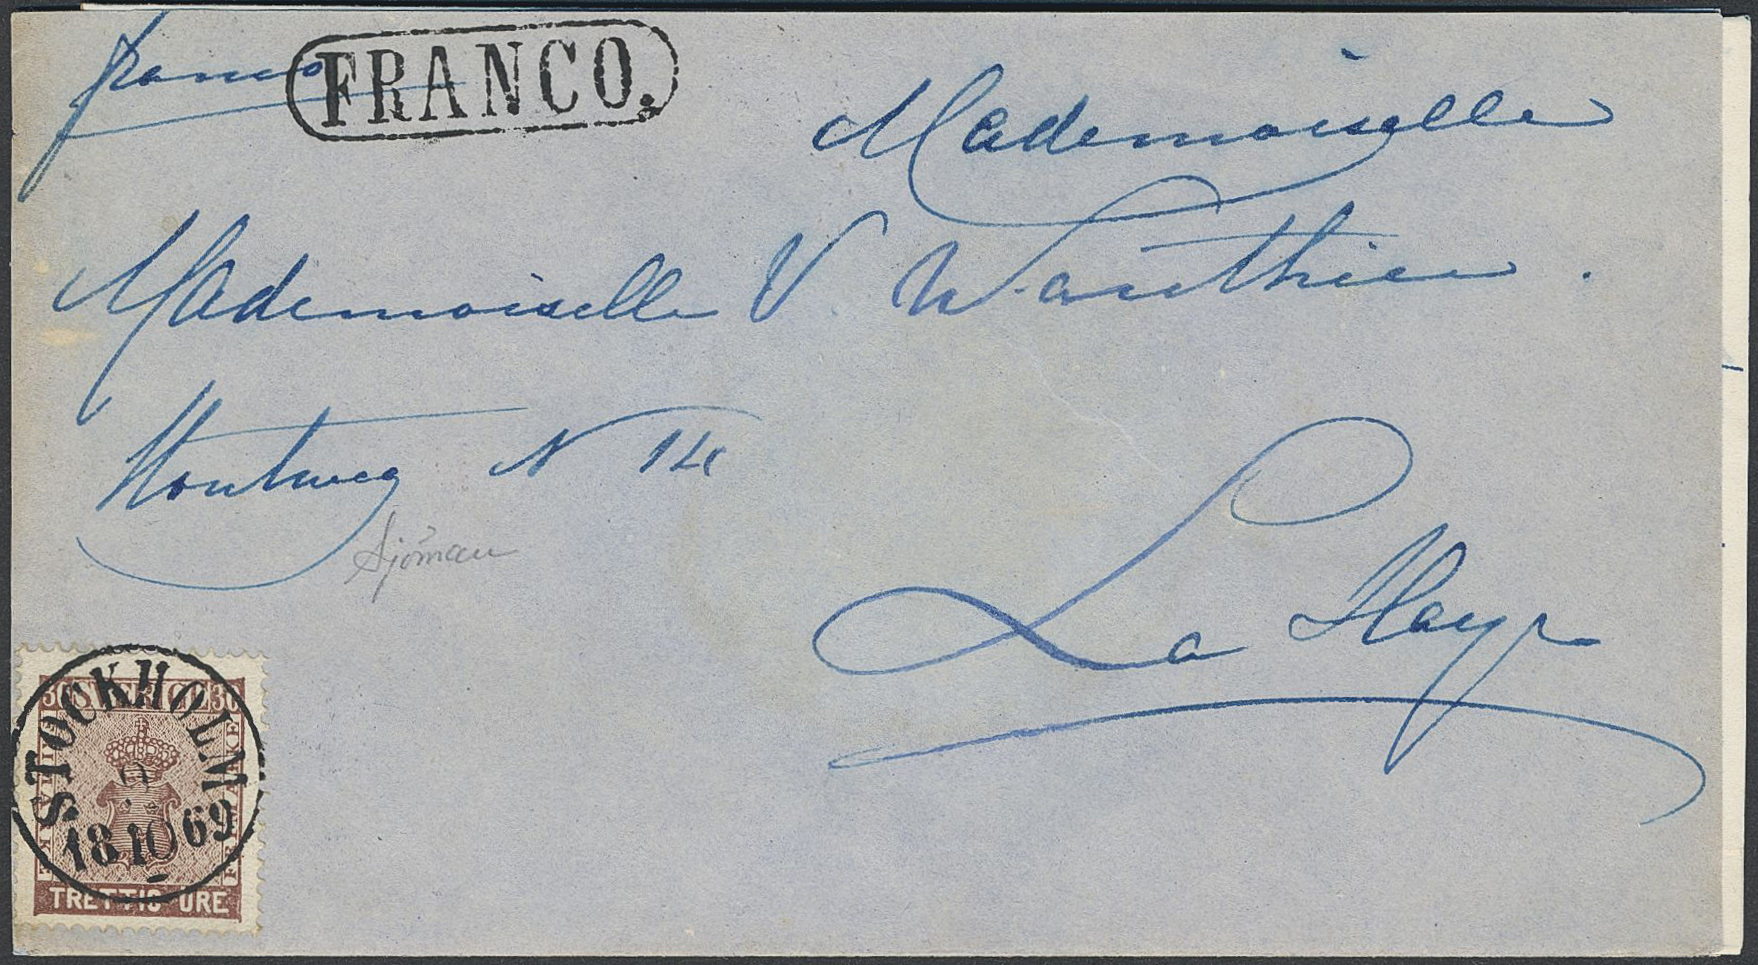 franco
FRANCO.
Mademoiselle
Mademoiselle V Wauthier.
Houtweg N 14
Sjöman
La Haye
STOCKHOLM
2
18 10 69
30 SVERIGE 30
FRIMÄRKE
TRETTIO ÖRE